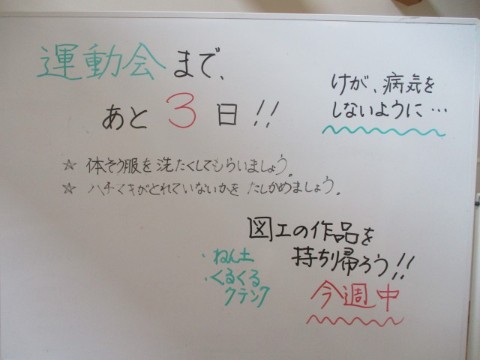 運動会まで、
あと3日!!
けが、病気を
しないように…
☆ 体そう服を洗たくしてもらいましょう。
☆ ハチマキがとれていないかをたしかめましょう。
図工の作品を
持ち帰ろう!!
・ねん土
・くるくる
クランク
今週中